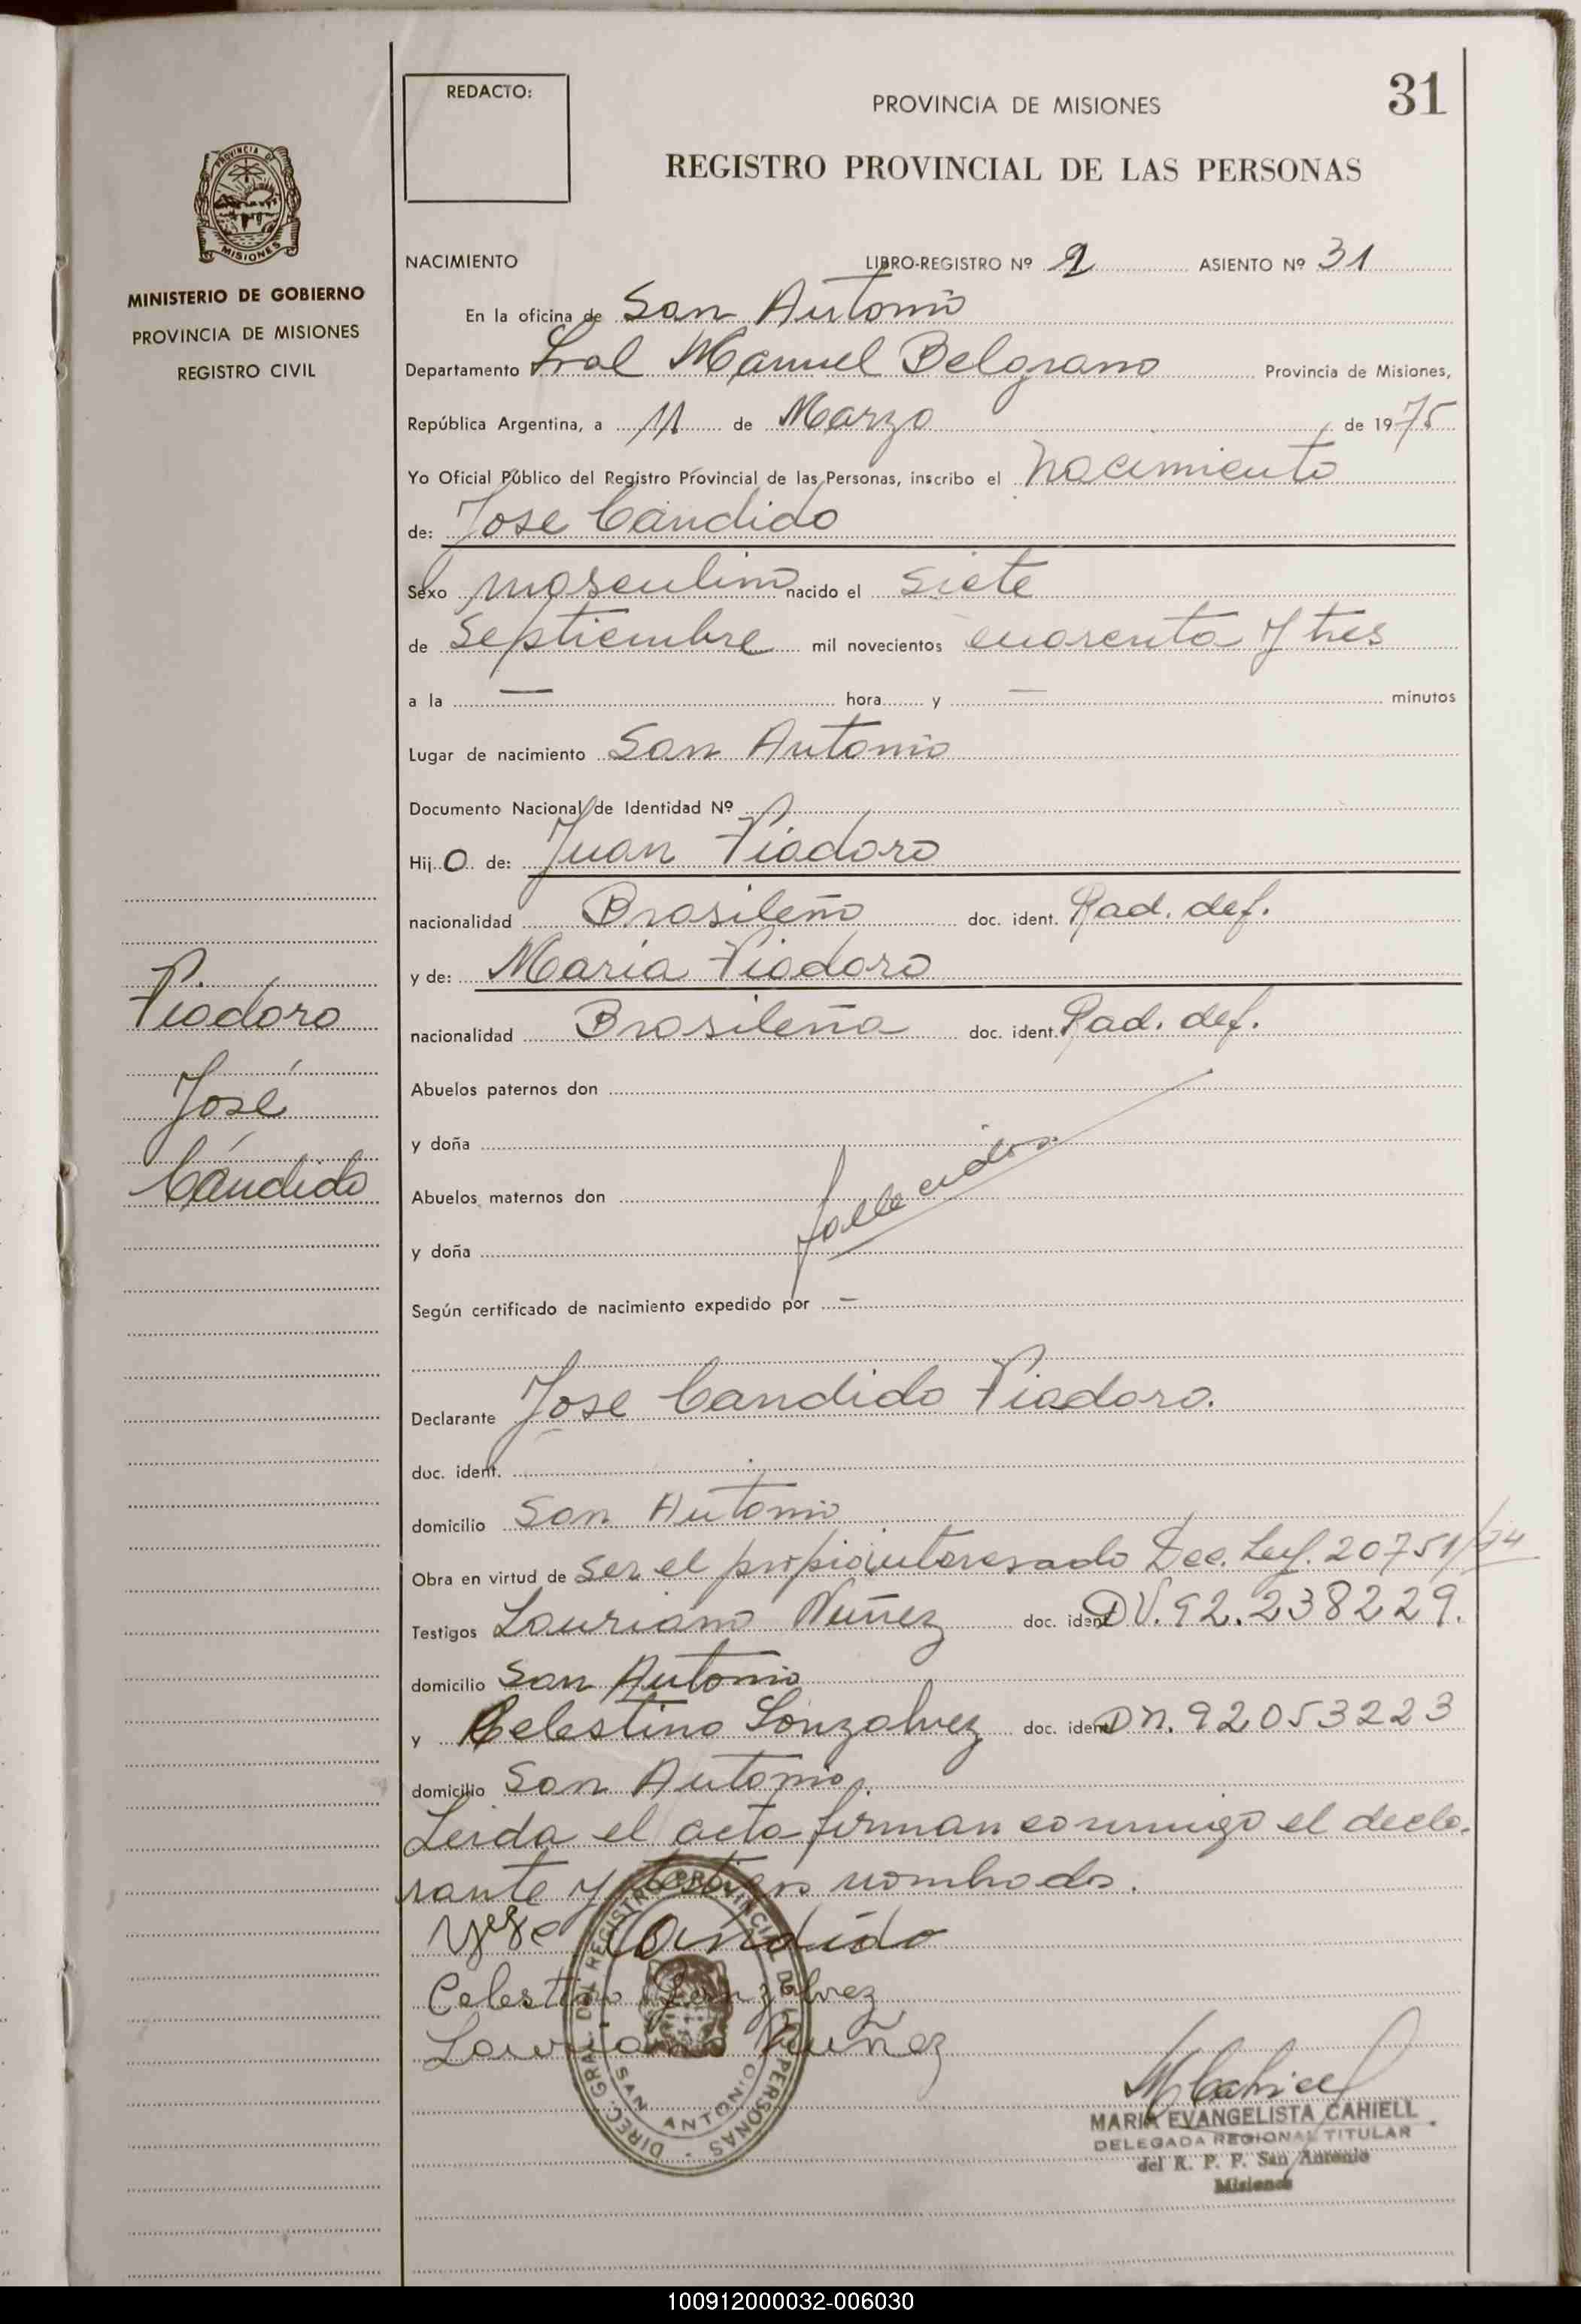 REDACTO:
PROVINCIA DE MISIONES
31
REGISTRO PROVINCIAL DE LAS PERSONAS
PROVINCIA DE
MISIONES
MINISTERIO DE GOBIERNO
PROVINCIA DE MISIONES
REGISTRO CIVIL
NACIMIENTO LIBRO-REGISTRO Nº 2 ASIENTO Nº 31
En la oficina de San Antonio
Departamento Gral Manuel Belgrano Provincia de Misiones,
República Argentina, a 11 de Marzo de 1975
Yo Oficial Público del Registro Provincial de las Personas, inscribo el nacimiento
de: Jose Cándido
Sexo masculino nacido el siete
de Septiembre mil novecientos cuarenta y tres
a la — hora y — minutos
Lugar de nacimiento San Antonio
Documento Nacional de Identidad Nº
Hijo de: Juan Fiodoro
nacionalidad Brasileño doc. ident. Rad. def.
y de: Maria Fiodoro
nacionalidad Brasileña doc. ident. Rad. def.
Fiodoro
José
Cándido
Abuelos paternos don
y doña
fallecidos
Abuelos maternos don
y doña
Según certificado de nacimiento expedido por —
Declarante Jose Candido Fiodoro.
doc. ident.
domicilio San Antonio
Obra en virtud de ser el propio interesado Dec. Ley. 20751/74
Testigos Lauriano Nuñez doc. ident. DV. 92.238229.
domicilio San Antonio
y Celestino Gonzalvez doc. ident. DN. 92053223
domicilio San Antonio.
Leida el acta firman conmigo el decla-
rante y testigos nombrados.
Jose Candido
Celestino Gonzalvez
Lauriano Nuñez
DIREC. GRAL. DEL REGISTRO PROVINCIAL DE LAS PERSONAS
SAN ANTONIO
MCahiell
MARIA EVANGELISTA CAHIELL
DELEGADA REGIONAL TITULAR
del R. P. P. San Antonio
Misiones
100912000032-006030